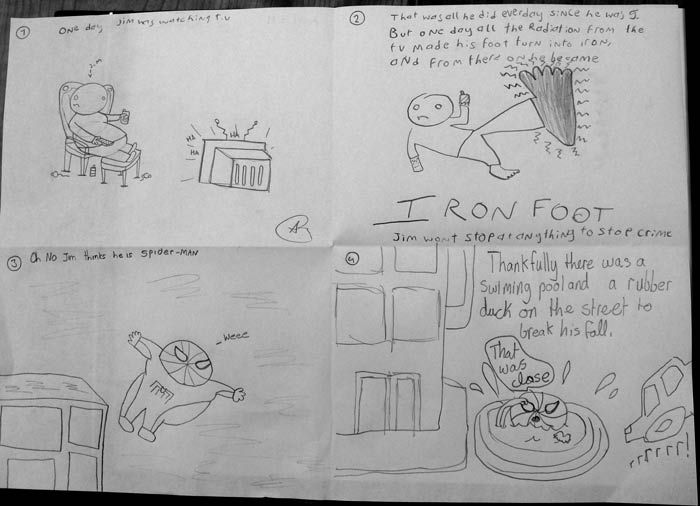 1
ONE day, Jim was watching T.V
Jim
HA
HA
HA
2
That was all he did everday since he was 5.
But one day all the Radiation from the
tv made his foot turn into iron,
and from there on he became
IRON FOOT
Jim wont stop at anything to stop crime
3
Oh No Jim thinks he is SPIDER-MAN
Weee
4
Thankfully there was a
Swiming pool and a rubber
duck on the street to
break his fall.
That
was
close
rrrrrr!